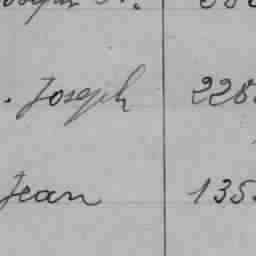 Joseph 228
Jean 135